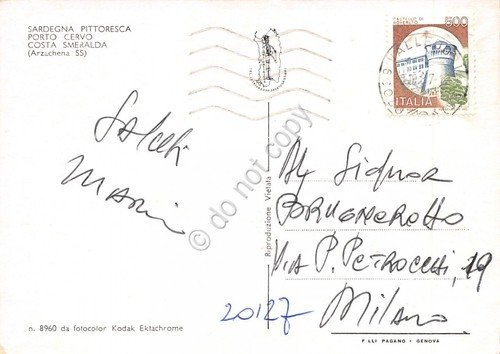 SARDEGNA PITTORESCA
PORTO CERVO
COSTA SMERALDA
(Arzachena SS)
CASTELLO DI
ROVERETO
500
ITALIA
Saluti
Mario
do not copy
Riproduzione Vietata
Al Signor
Via P. Petrocchi, 19
20127 Milano
n. 8960 da fotocolor Kodak Ektachrome
F.LLI PAGANO - GENOVA